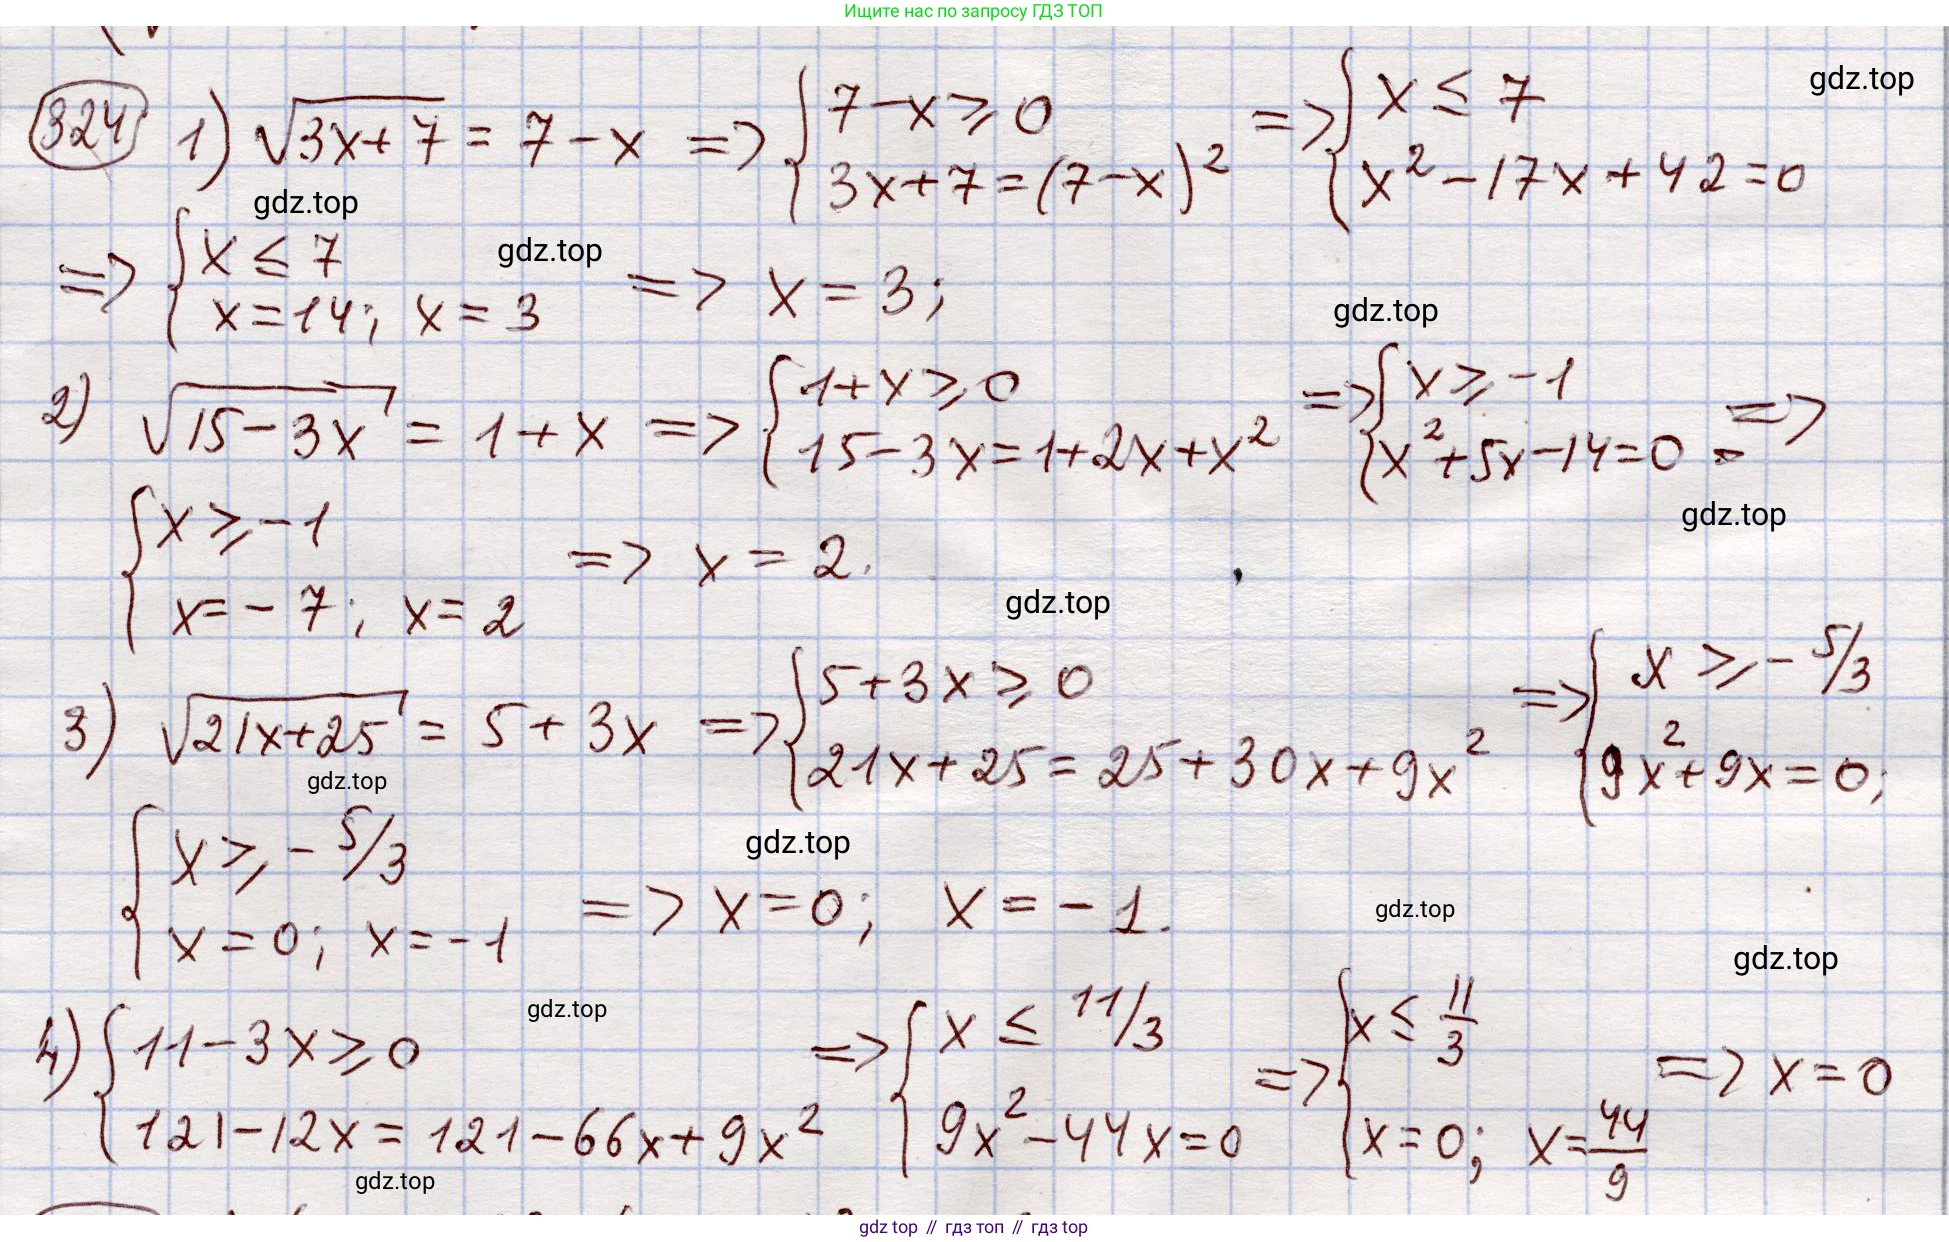 Ищите нас по запросу ГДЗ ТОП
gdz.top
324 1) √(3x+7) = 7-x => { 7-x ≥ 0 ; 3x+7=(7-x)² => { x ≤ 7 ; x²-17x+42=0
gdz.top
gdz.top
=> { x ≤ 7 ; x=14; x=3 => x=3;
gdz.top
2) √(15-3x) = 1+x => { 1+x ≥ 0 ; 15-3x=1+2x+x² => { x ≥ -1 ; x²+5x-14=0 =>
gdz.top
{ x ≥ -1 ; x=-7; x=2 => x=2.
gdz.top
3) √(21x+25) = 5+3x => { 5+3x ≥ 0 ; 21x+25=25+30x+9x² => { x ≥ -5/3 ; 9x²+9x=0;
gdz.top
gdz.top
{ x ≥ -5/3 ; x=0; x=-1 => x=0; x=-1.
gdz.top
gdz.top
gdz.top
4) { 11-3x ≥ 0 ; 121-12x=121-66x+9x² => { x ≤ 11/3 ; 9x²-44x=0 => { x ≤ 11/3 ; x=0; x=44/9 => x=0
gdz.top
gdz top // гдз топ // gdz top